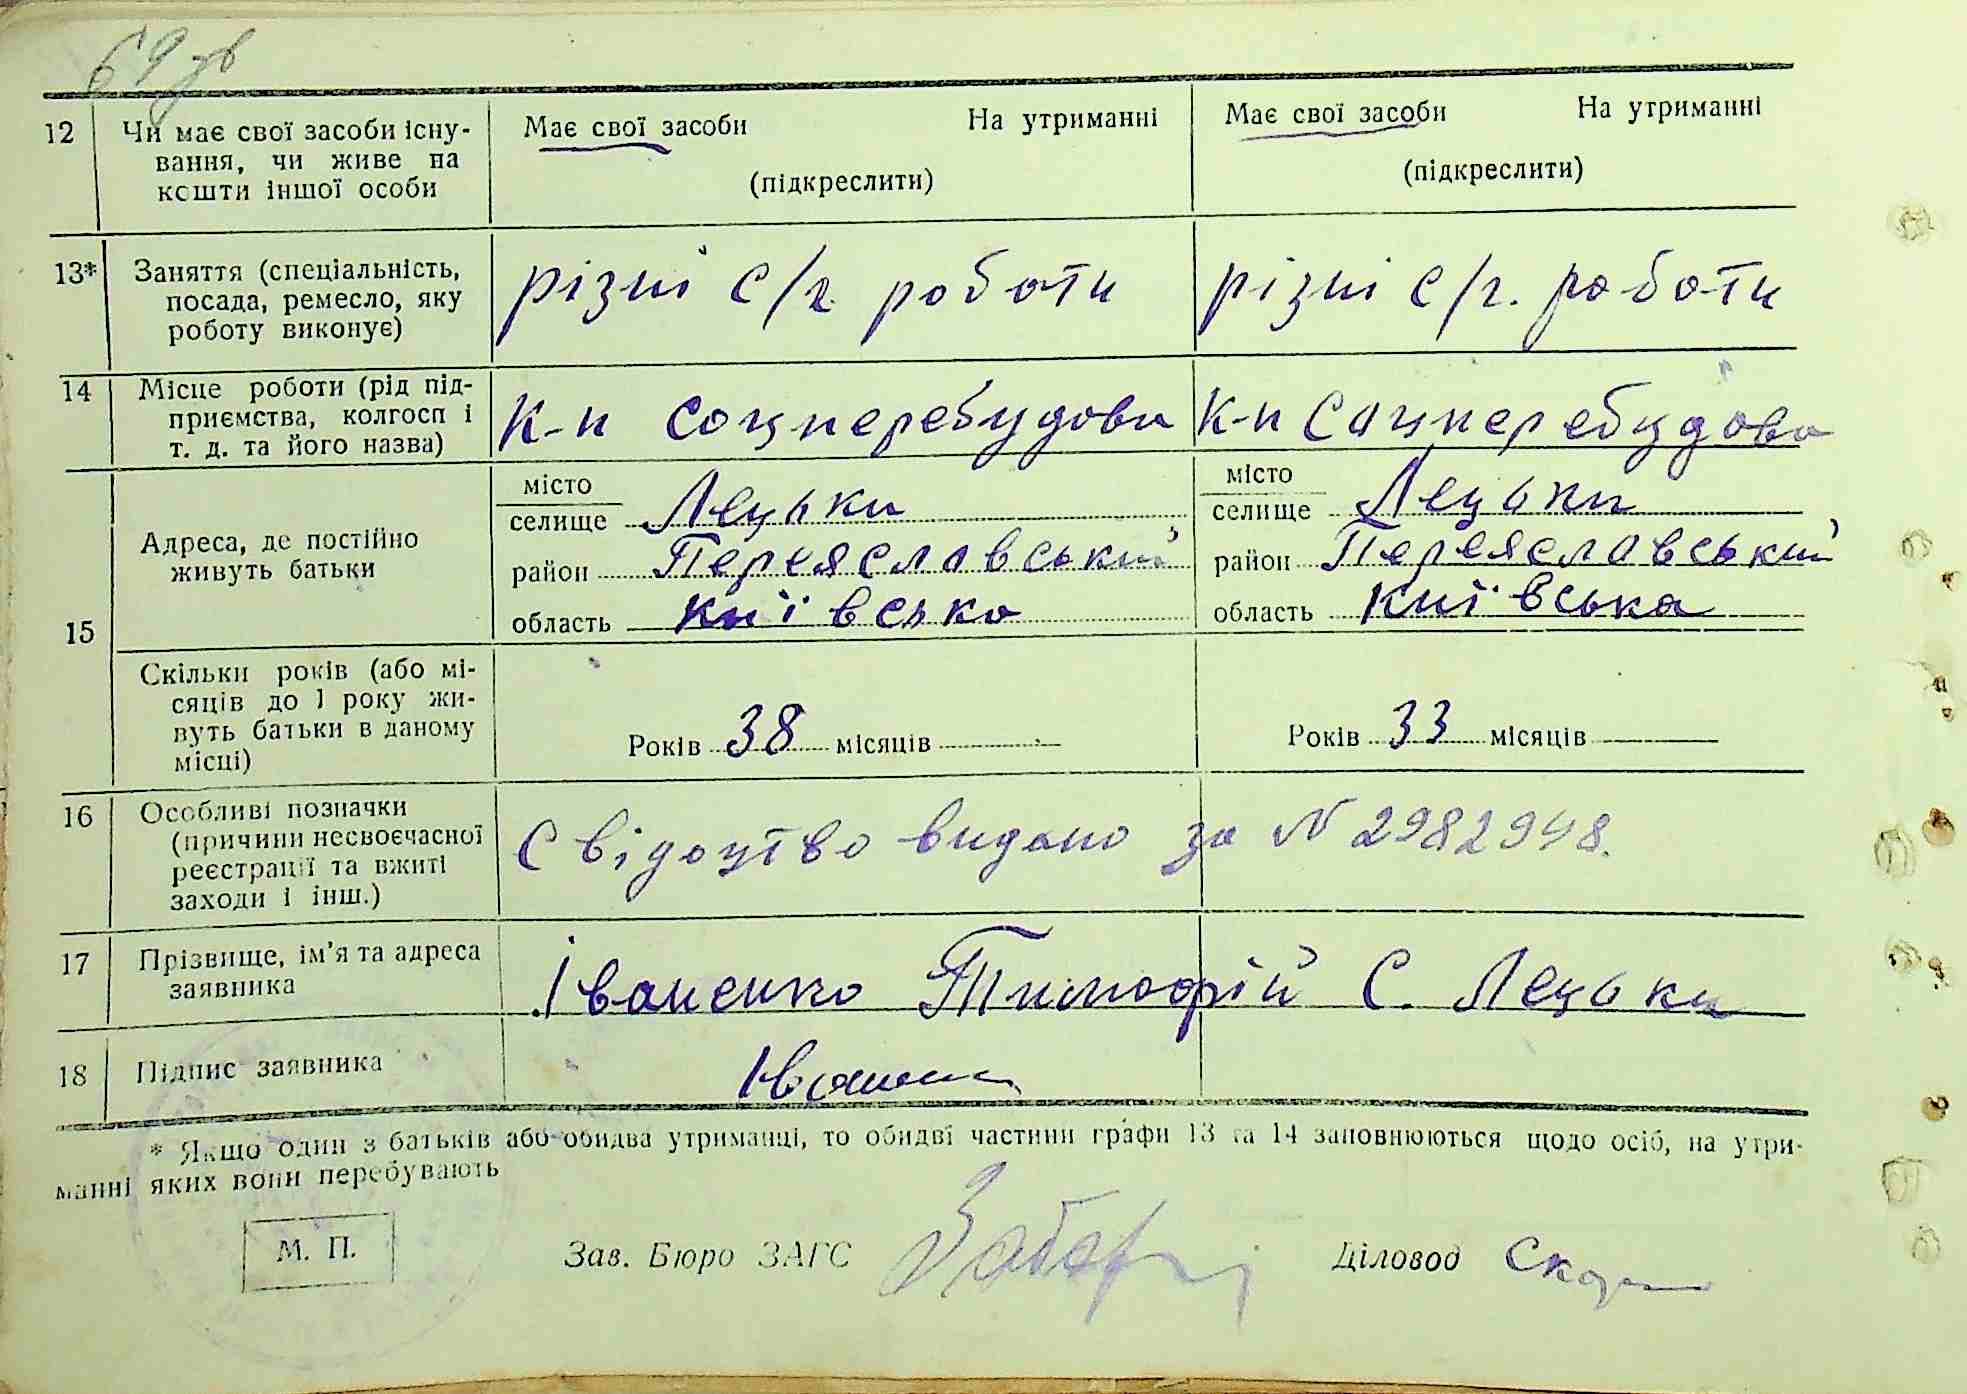 69 зв
12 Чи має свої засоби існу- Має свої засоби На утриманні Має свої засоби На утриманні
вання, чи живе на (підкреслити) (підкреслити)
кошти іншої особи
13* Заняття (спеціальність, різні с/г. роботи різні с/г. роботи
посада, ремесло, яку
роботу виконує)
14 Місце роботи (рід під- К-п Соцперебудова К-п Соцперебудова
приємства, колгосп і
т. д. та його назва)
15 Адреса, де постійно живуть батьки
місто
селище Лецьки
район Переяславський
область Київська
місто
селище Лецьки
район Переяславський
область Київська
Скільки років (або мі-
сяців до 1 року жи-
вуть батьки в даному
місці)
Років 38 місяців — Років 33 місяців —
16 Особливі позначки
(причини несвоєчасної
реєстрації та вжиті
заходи і інш.)
Свідоцтво видано за N 2982948.
17 Прізвище, ім'я та адреса
заявника
Іваненко Тимофій С. Лецьки
18 Підпис заявника
* Якщо один з батьків або обидва утриманці, то обидві частини графи 13 та 14 заповнюються щодо осіб, на утри-
манні яких вони перебувають
М. П. Зав. Бюро ЗАГС Діловод